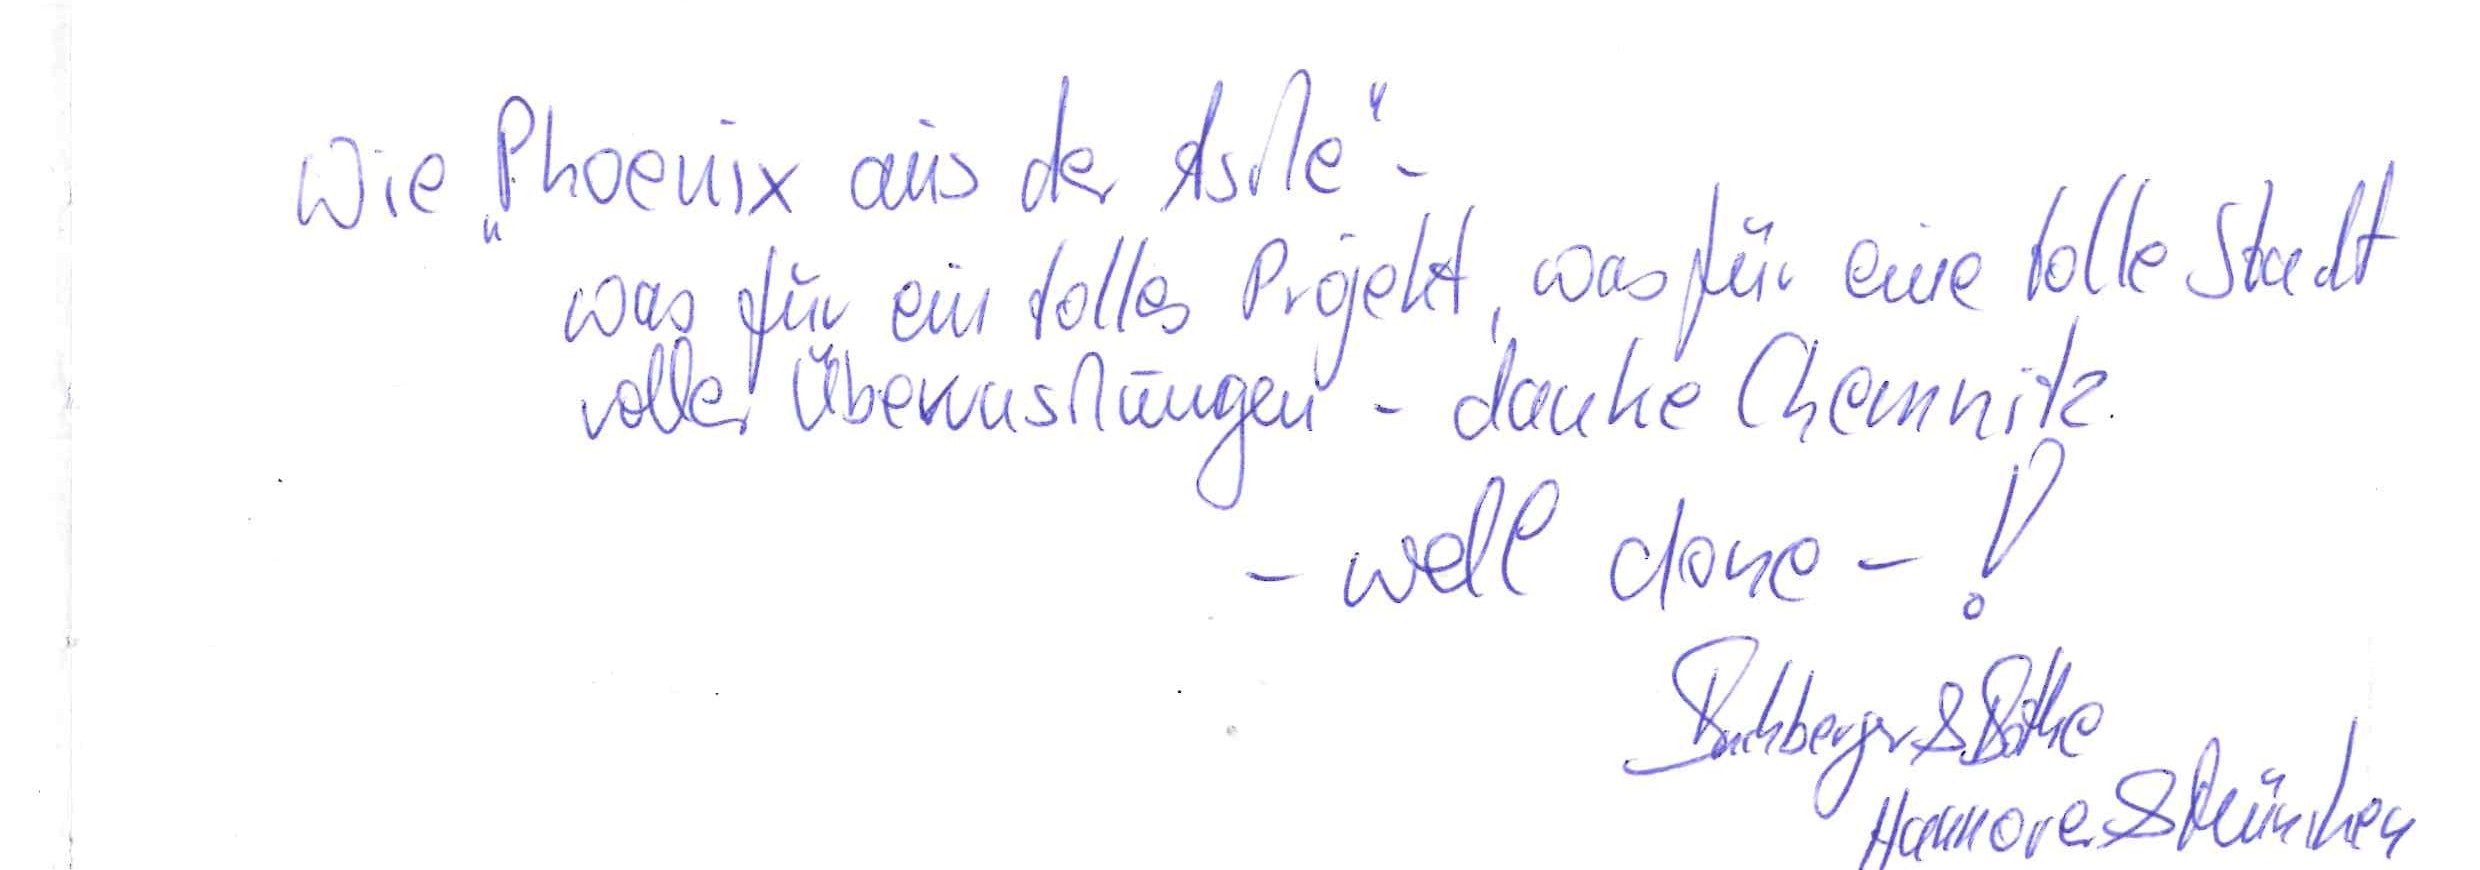 Wie „Phoenix aus der Asche" -
was für ein tolles Projekt, was für eine tolle Stadt
voller Überraschungen - danke Chemnitz.
- well done - !
Buchberger & Bothe
Hannover & München